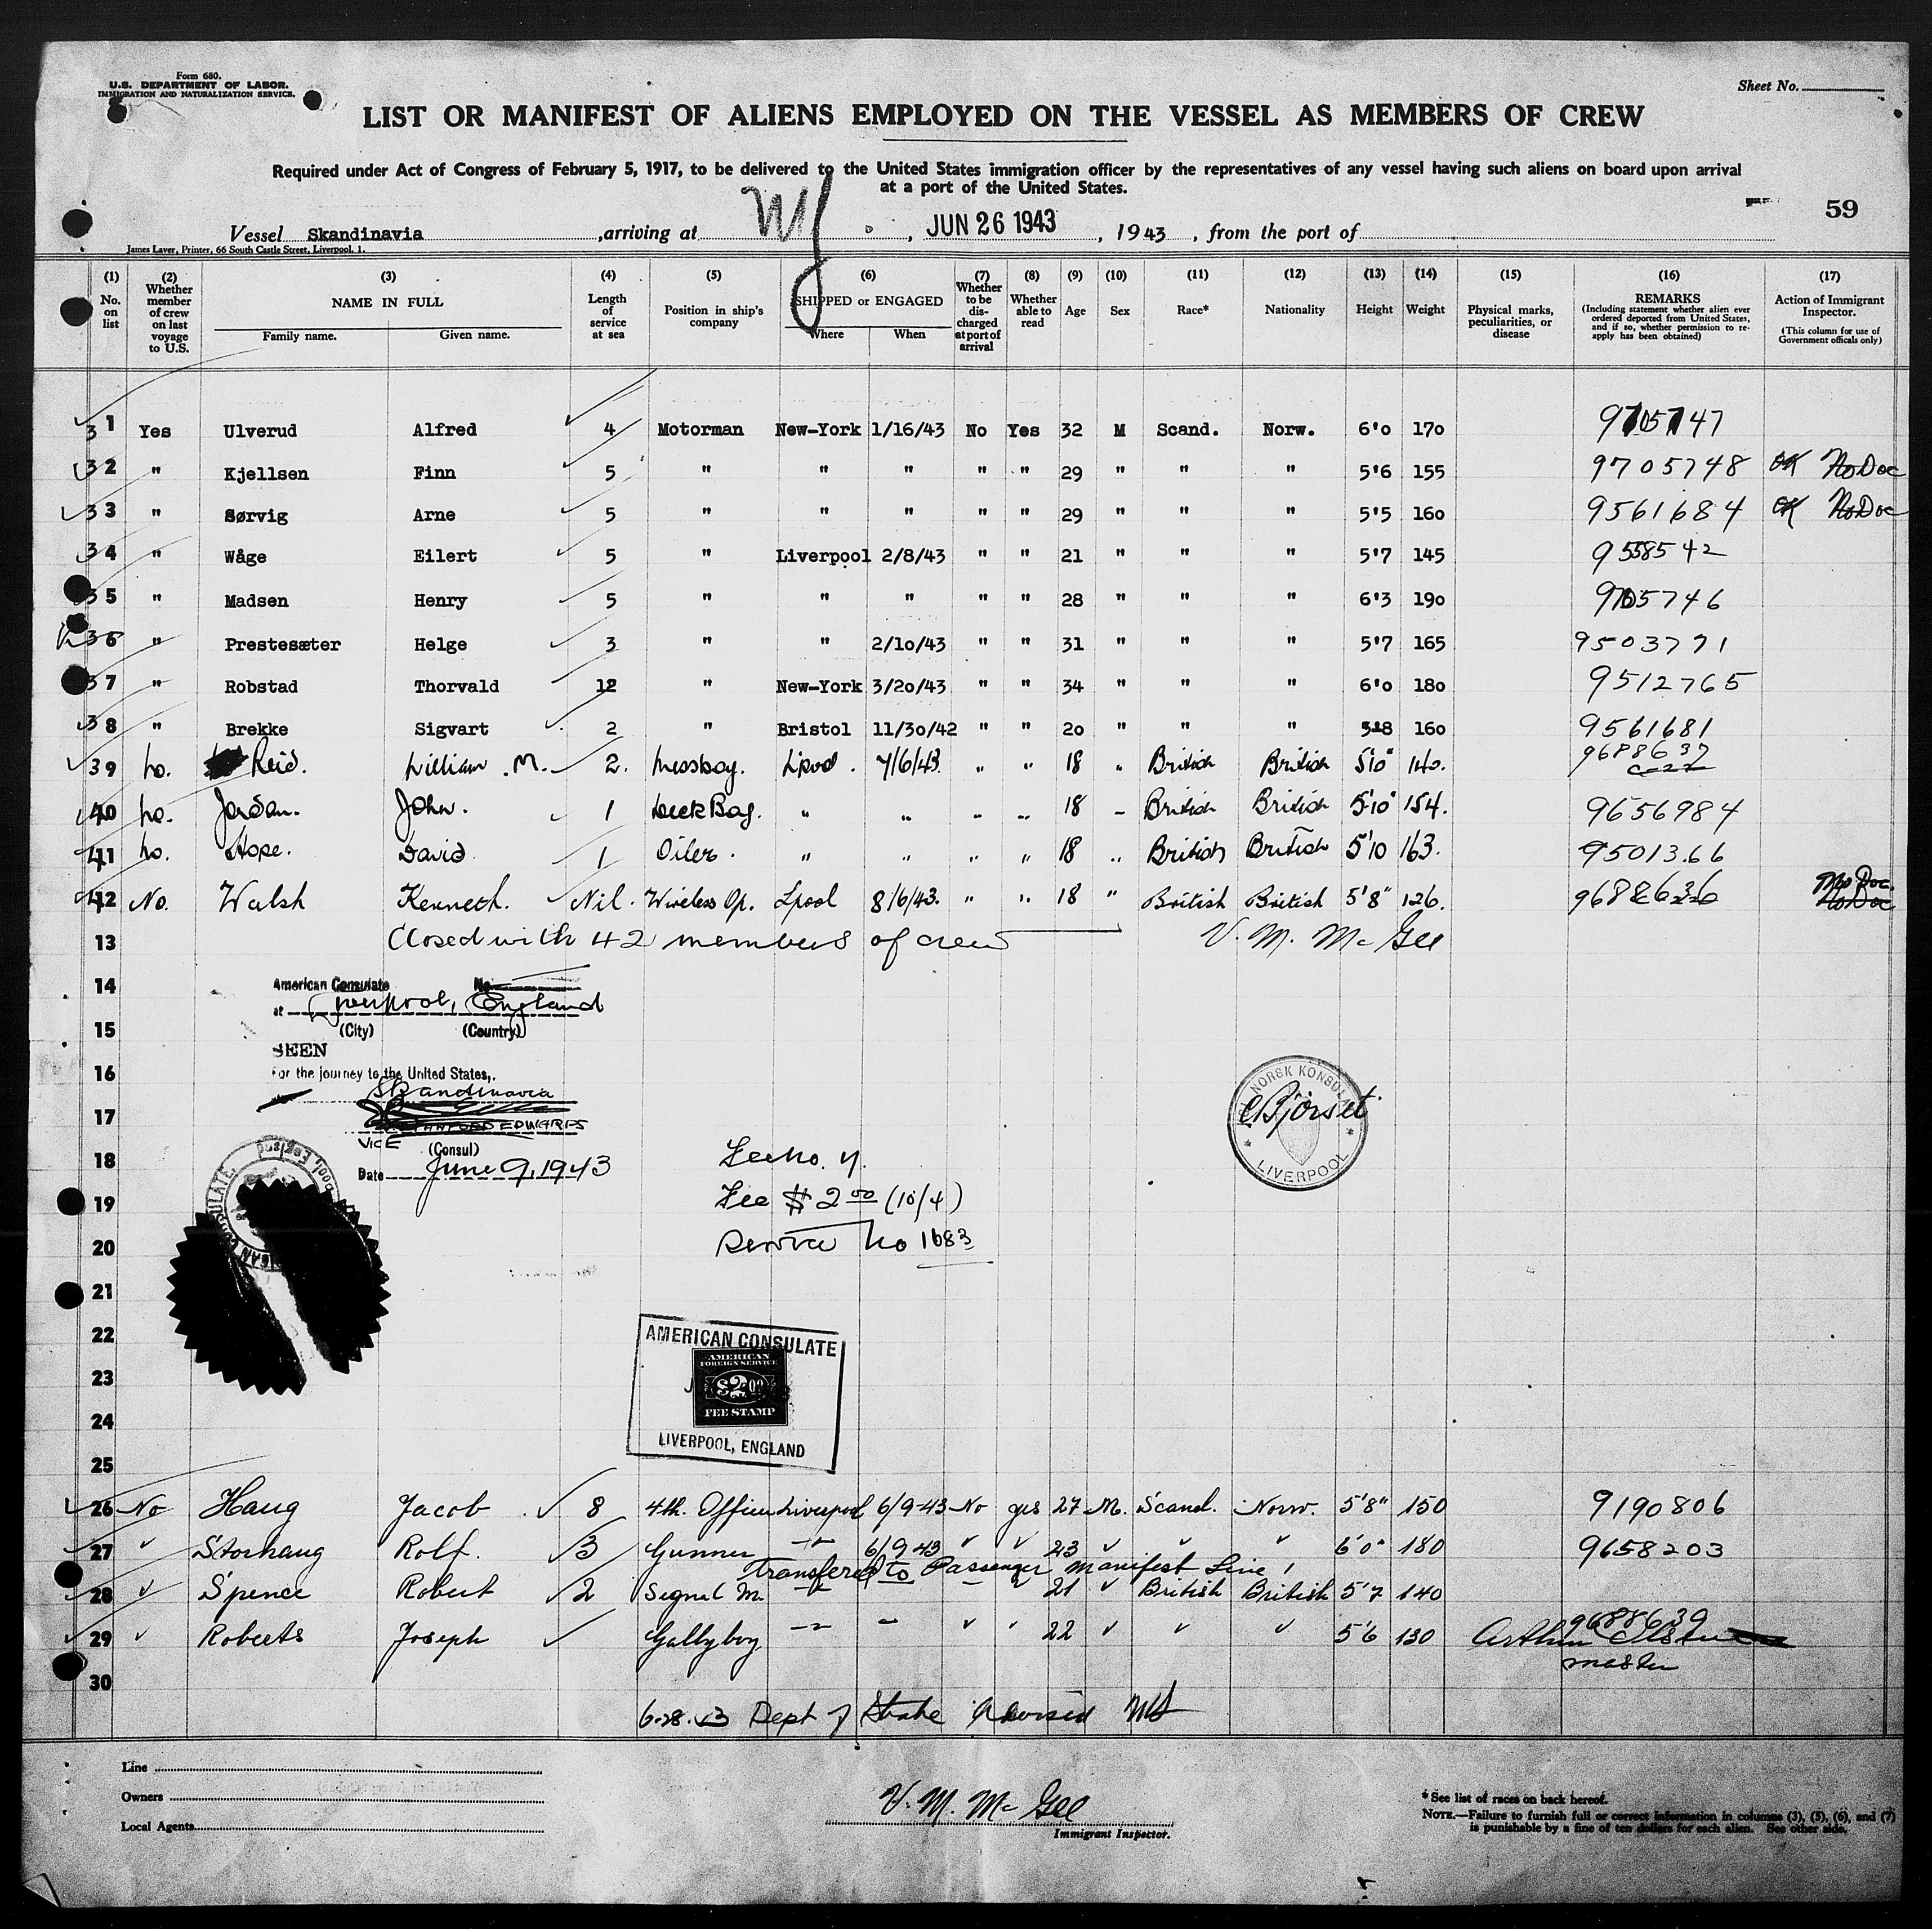 Form 680.
U.S. DEPARTMENT OF LABOR.
IMMIGRATION AND NATURALIZATION SERVICE.
Sheet No.
LIST OR MANIFEST OF ALIENS EMPLOYED ON THE VESSEL AS MEMBERS OF CREW
Required under Act of Congress of February 5, 1917, to be delivered to the United States immigration officer by the representatives of any vessel having such aliens on board upon arrival
at a port of the United States.
59
Vessel Skandinavia, arriving at NY, JUN 26 1943, 1943, from the port of
James Laver, Printer, 66 South Castle Street, Liverpool. 1.
(1) (2) (3) (4) (5) (6) (7) (8) (9) (10) (11) (12) (13) (14) (15) (16) (17)
No. on list
Whether member of crew on last voyage to U.S.
NAME IN FULL
Family name. Given name.
Length of service at sea
Position in ship's company
SHIPPED or ENGAGED
Where When
Whether to be discharged at port of arrival
Whether able to read
Age
Sex
Race*
Nationality
Height
Weight
Physical marks, peculiarities, or disease
REMARKS
(Including statement whether alien ever ordered deported from United States, and if so, whether permission to re-apply has been obtained)
Action of Immigrant Inspector.
(This column for use of Government officals only)
31 Yes Ulverud Alfred 4 Motorman New-York 1/16/43 No Yes 32 M Scand. Norw. 6'0 170 9705747
32 " Kjellsen Finn 5 " " " " " 29 " " " 5'6 155 9705748 OK No Doc
33 " Sørvig Arne 5 " " " " " 29 " " " 5'5 160 9561684 OK No Doc
34 " Wåge Eilert 5 " Liverpool 2/8/43 " " 21 " " " 5'7 145 9558542
35 " Madsen Henry 5 " " " " " 28 " " " 6'3 190 9705746
36 " Prestesæter Helge 3 " " 2/10/43 " " 31 " " " 5'7 165 9503771
37 " Robstad Thorvald 12 " New-York 3/20/43 " " 34 " " " 6'0 180 9512765
38 " Brekke Sigvart 2 " Bristol 11/30/42 " " 20 " " " 5'8 160 9561681
39 No. Reid. William. M. 2. Messboy. Lpool. 7/6/43. " " 18 " British British 5'10" 140. 9688637
40 No. Jordan. John. 1 Deck Boy. " " " " 18 " British British 5'10" 154. 9656984
41 No. Hope. David 1 Oiler. " " " " 18 " British British 5'10 163. 9501366
42 No. Walsh Kenneth. Nil. Wireless Op. Lpool 8/6/43. " " 18 " British British 5'8" 126. 9688636 No Doc
13 Closed with 42 members of crew V. M. McGee
14 American Consulate No.
at Liverpool, England
15 (City) (Country)
SEEN
16 For the journey to the United States,
Skandinavia
17 EDWARDS
VICE (Consul)
Date June 9, 1943
NORSK KONSULAT
C Bjorset
LIVERPOOL
18 Fee No. 4.
19 Fee $2.00 (10/4)
20 Service No 1683
21
22 AMERICAN CONSULATE
23 AMERICAN FOREIGN SERVICE
$2.00
FEE STAMP
24 LIVERPOOL, ENGLAND
25
26 No Haug Jacob 8 4th. Officer Liverpool 6/9-43 No yes 27 M. Scand. Norw. 5'8" 150 9190806
27 " Storhaug Rolf. 3 Gunner " 6/9 43 " " 23 " " " 6'0" 180 9658203
Transfered to Passenger Manifest Line 1
28 " Spence Robert 2 Signal M. " 21 " British British 5'7 140
29 " Roberts Joseph Galleyboy " " " " 22 " " " 5'6 130 9688639
Arthur
master
30
6-28-43 Dept of State Advised
Line
Owners
Local Agents
V. M. McGee
Immigrant Inspector.
* See list of races on back hereof.
NOTE.—Failure to furnish full or correct information in columns (3), (5), (6), and (7)
is punishable by a fine of ten dollars for each alien. See other side.